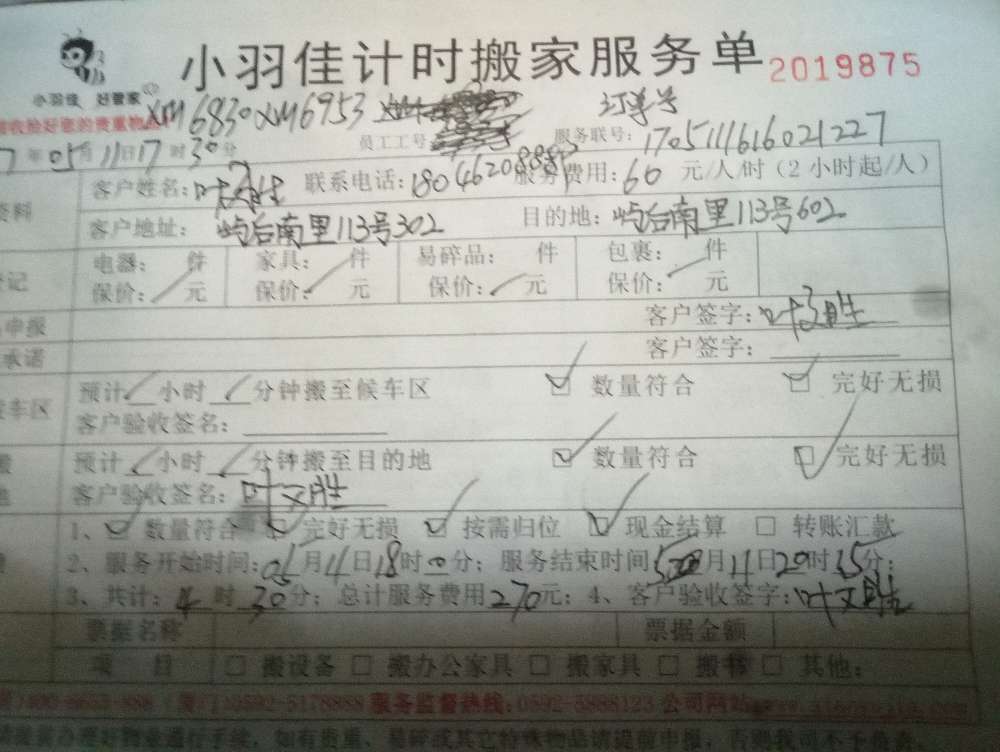 小羽佳计时搬家服务单 2019875
小羽佳 好管家
XM6830XM6953 订单号
收捡好您的贵重物品 员工工号 服务联号: 1705111616021227
7年05月11日17时30分
客户姓名:叶文胜 联系电话:18046208883 服务费用:60元/人/时(2小时起/人)
资料
客户地址: 屿后南里113号302 目的地: 屿后南里113号602
电器: 件 家具: 件 易碎品: 件 包裹: 件
登记
保价: 元 保价: 元 保价: 元 保价: 元
申报 客户签字:叶文胜
承诺 客户签字:
预计 小时 分钟搬至候车区 数量符合 完好无损
车区
客户验收签名:
预计 小时 分钟搬至目的地 数量符合 完好无损
客户验收签名:叶文胜
1、 数量符合 完好无损 按需归位 现金结算 转账汇款
2、服务开始时间:05月11日18时00分; 服务结束时间 月11日20时 分;
3、共计:4时30分; 总计服务费用270元; 4、客户验收签字:叶文胜
票据名称 票据金额
项 目 搬设备 搬办公家具 搬家具 搬 其他:
0592-5178888 服务监督热线:0592-5888123 公司网站
如有贵重、易碎或其它特殊物品请提前申报,否则我司不予负责